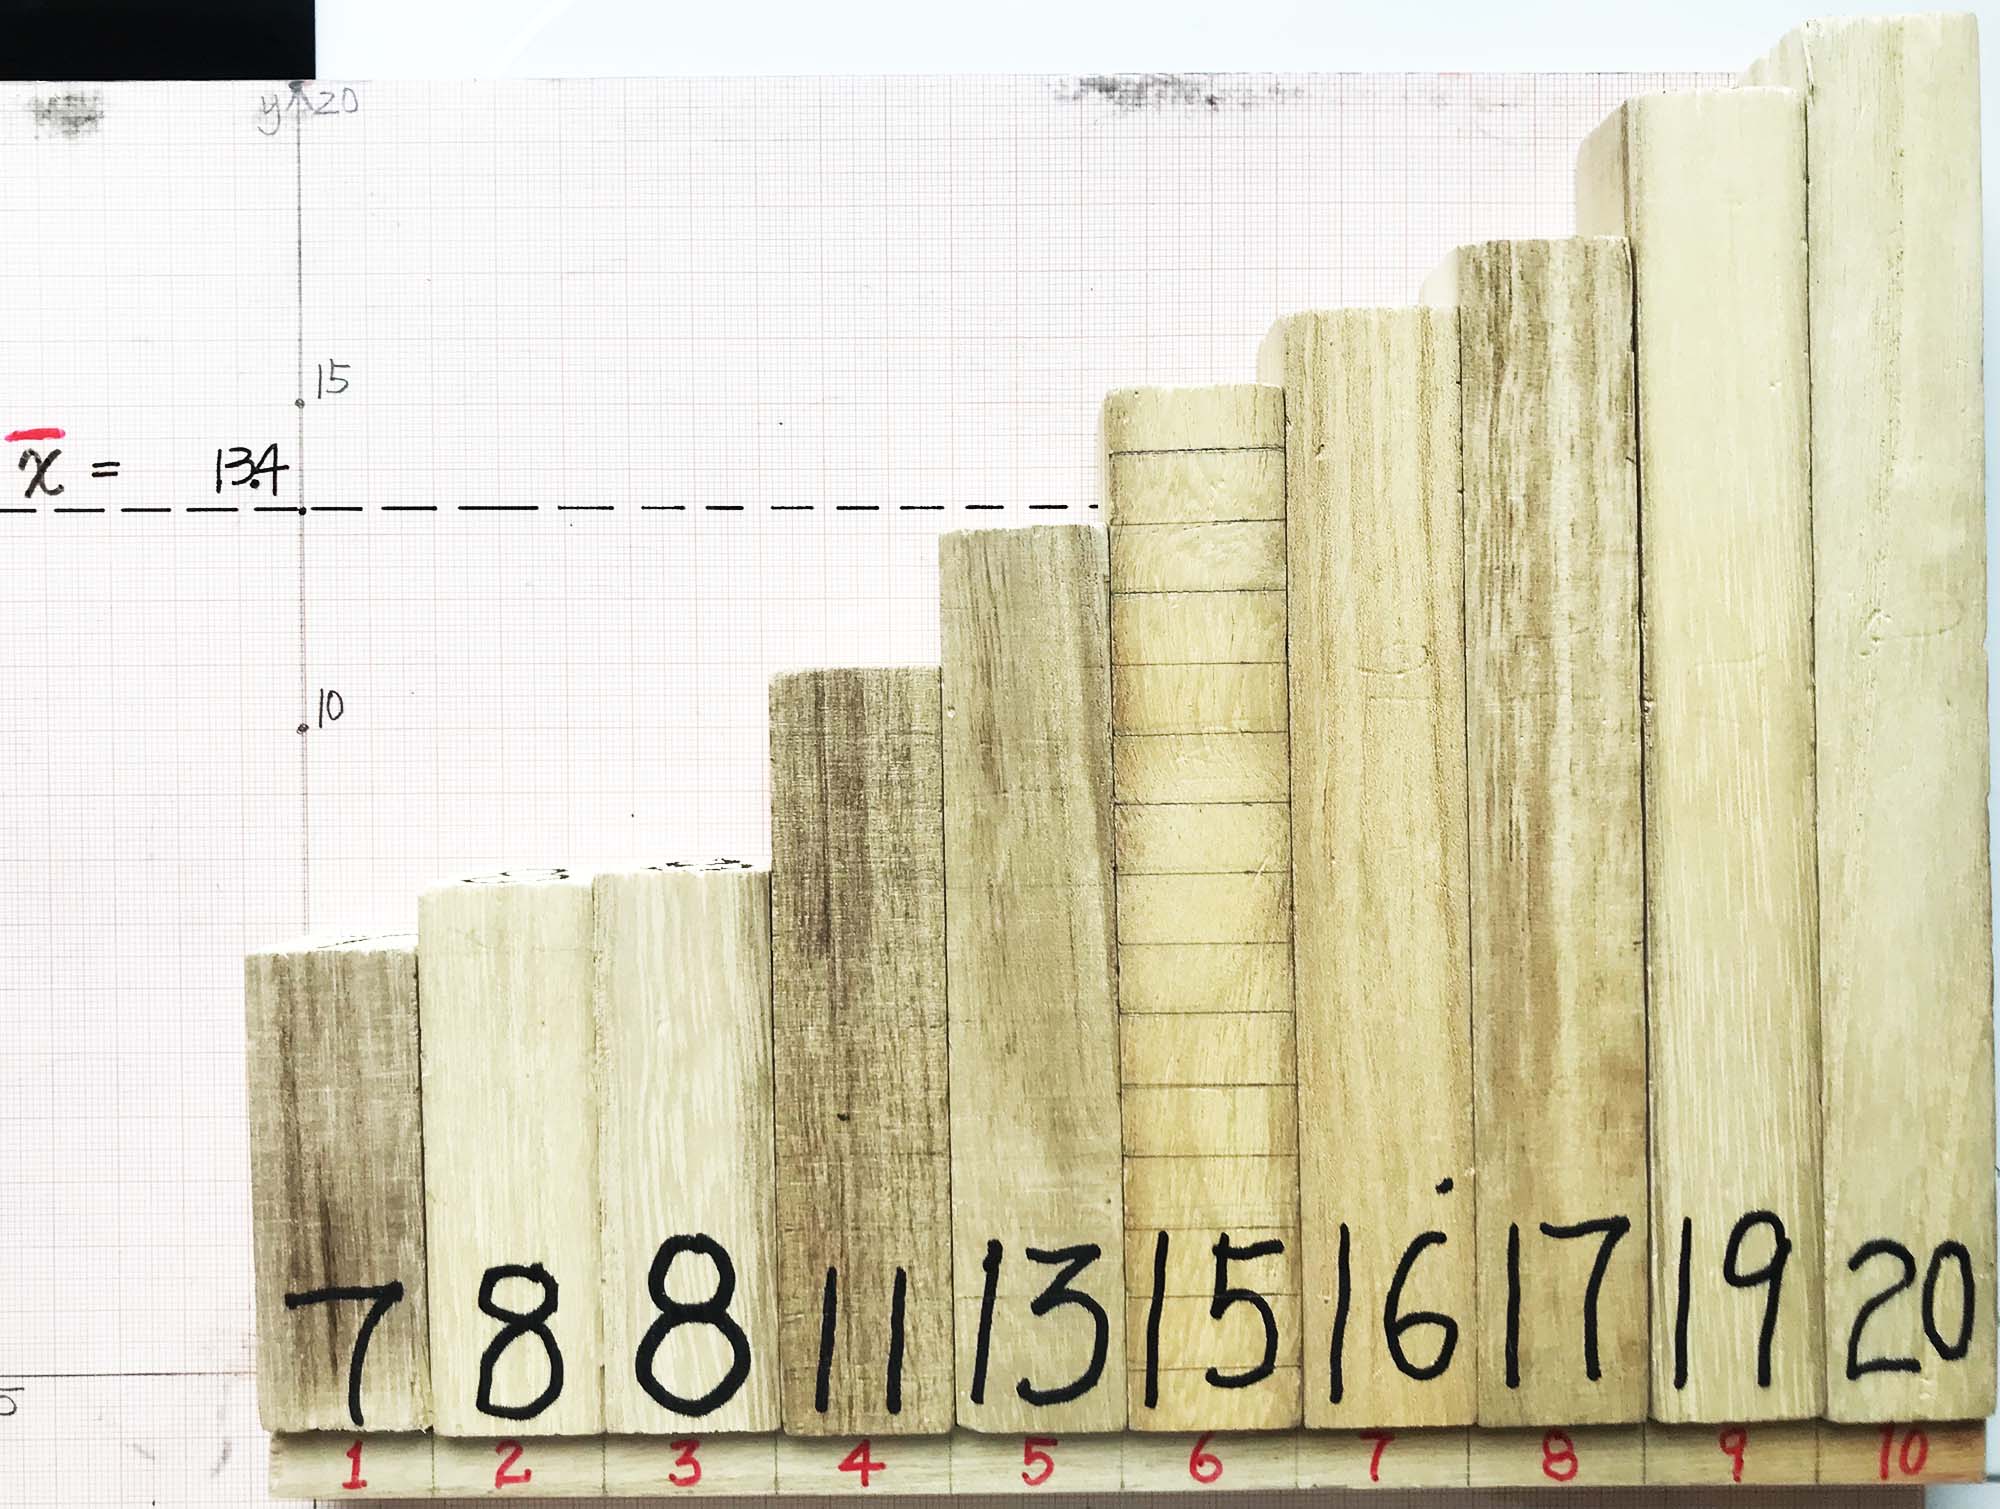 y 20
15
x̄ = 13.4
10
7 8 8 11 13 15 16 17 19 20
5
1 2 3 4 5 6 7 8 9 10